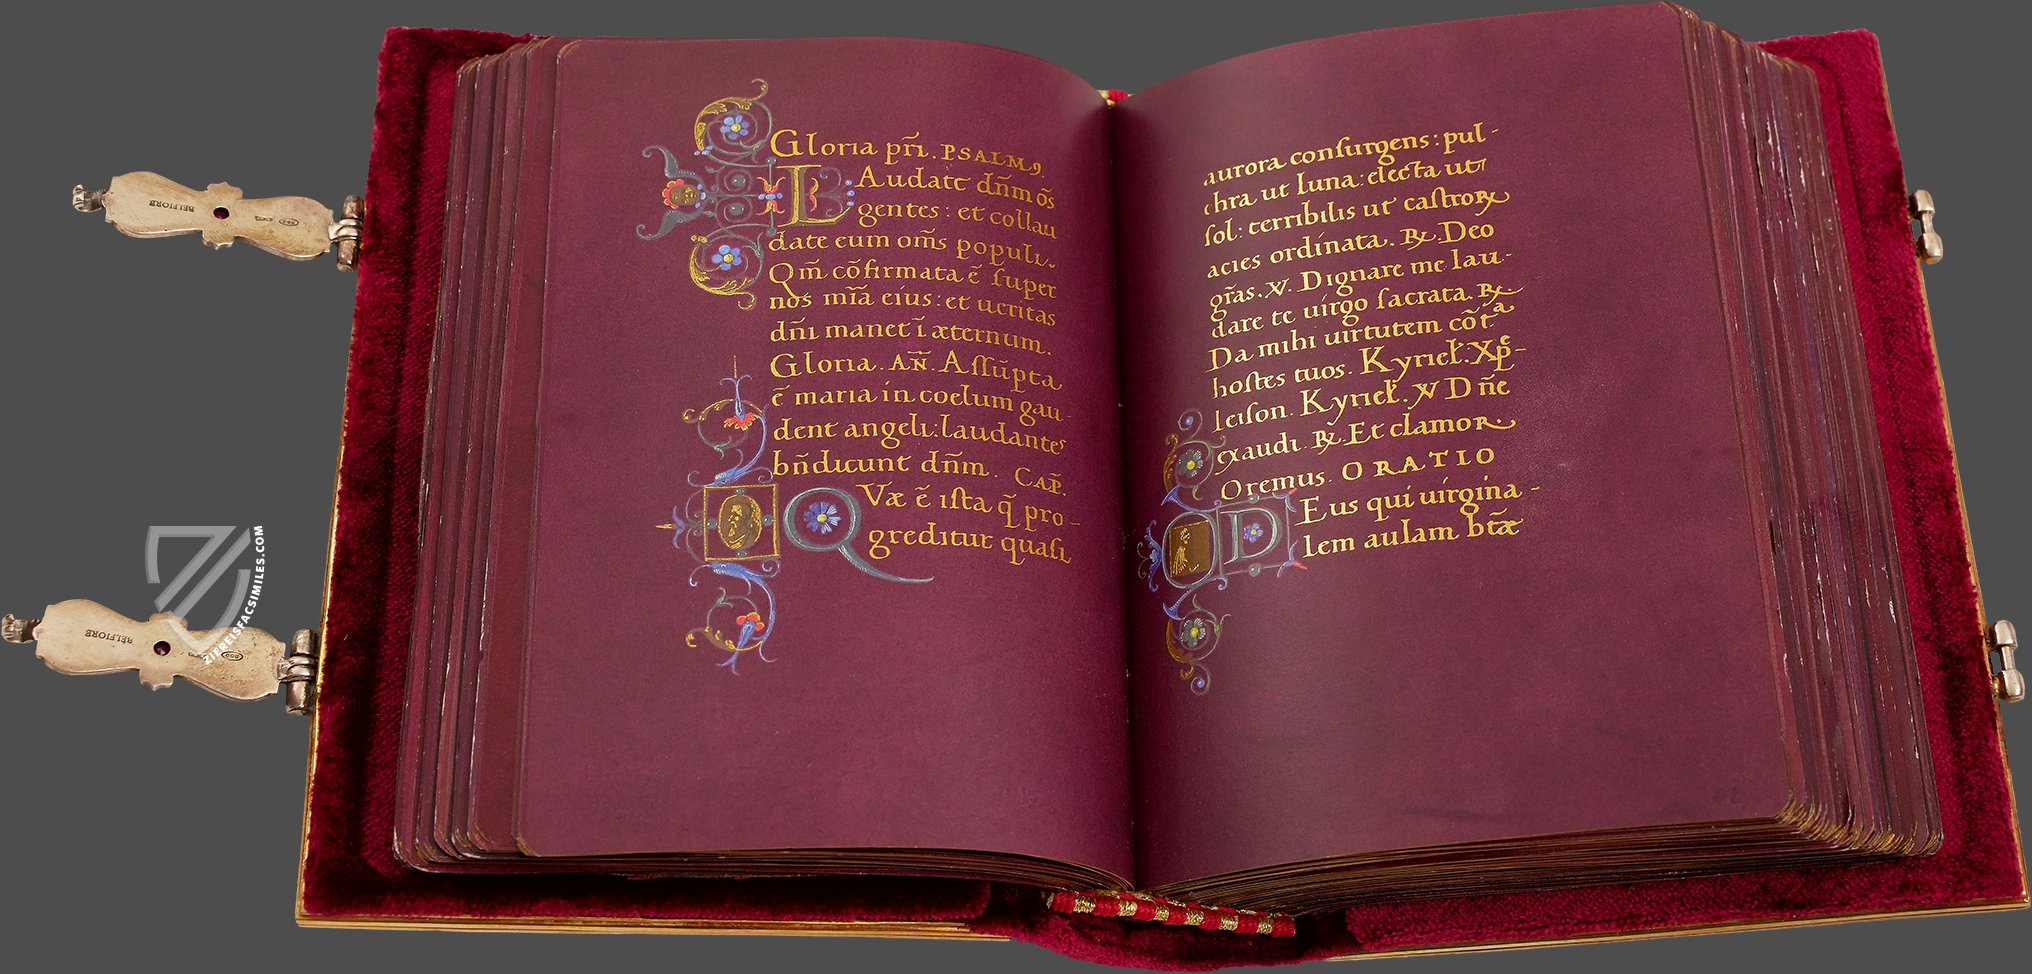 Gloria pr̃i. PSALM9.
LAudate dñm õs
gentes: et collau
date eum om̃s populi.
Qm̃ cõfirmata ẽ super
nos mĩa eius: et ueritas
dñi manet ĩ æternum.
Gloria. AÑ. Assũpta
ẽ maria in coelum gau-
dent angeli: laudantes
bñdicunt dñm. CAP̃.
QVæ ẽ ista q̃ pro-
greditur quasi
aurora consurgens: pul-
chra ut luna: electa ut
sol: terribilis ut castroꝝ
acies ordinata. ℞. Deo
gr̃as. ℣. Dignare me lau-
dare te uirgo sacrata. ℞.
Da mihi uirtutem cõtᵃ
hostes tuos. Kyriel̃. Xp̃e-
leison. Kyriel̃. ℣ Dñe
exaudi. ℞. Et clamor.
Oremus. ORATIO
DEus qui uirgina-
lem aulam btæ̃
BELFIORE
BELFIORE
800
ZIEREISFACSIMILES.COM